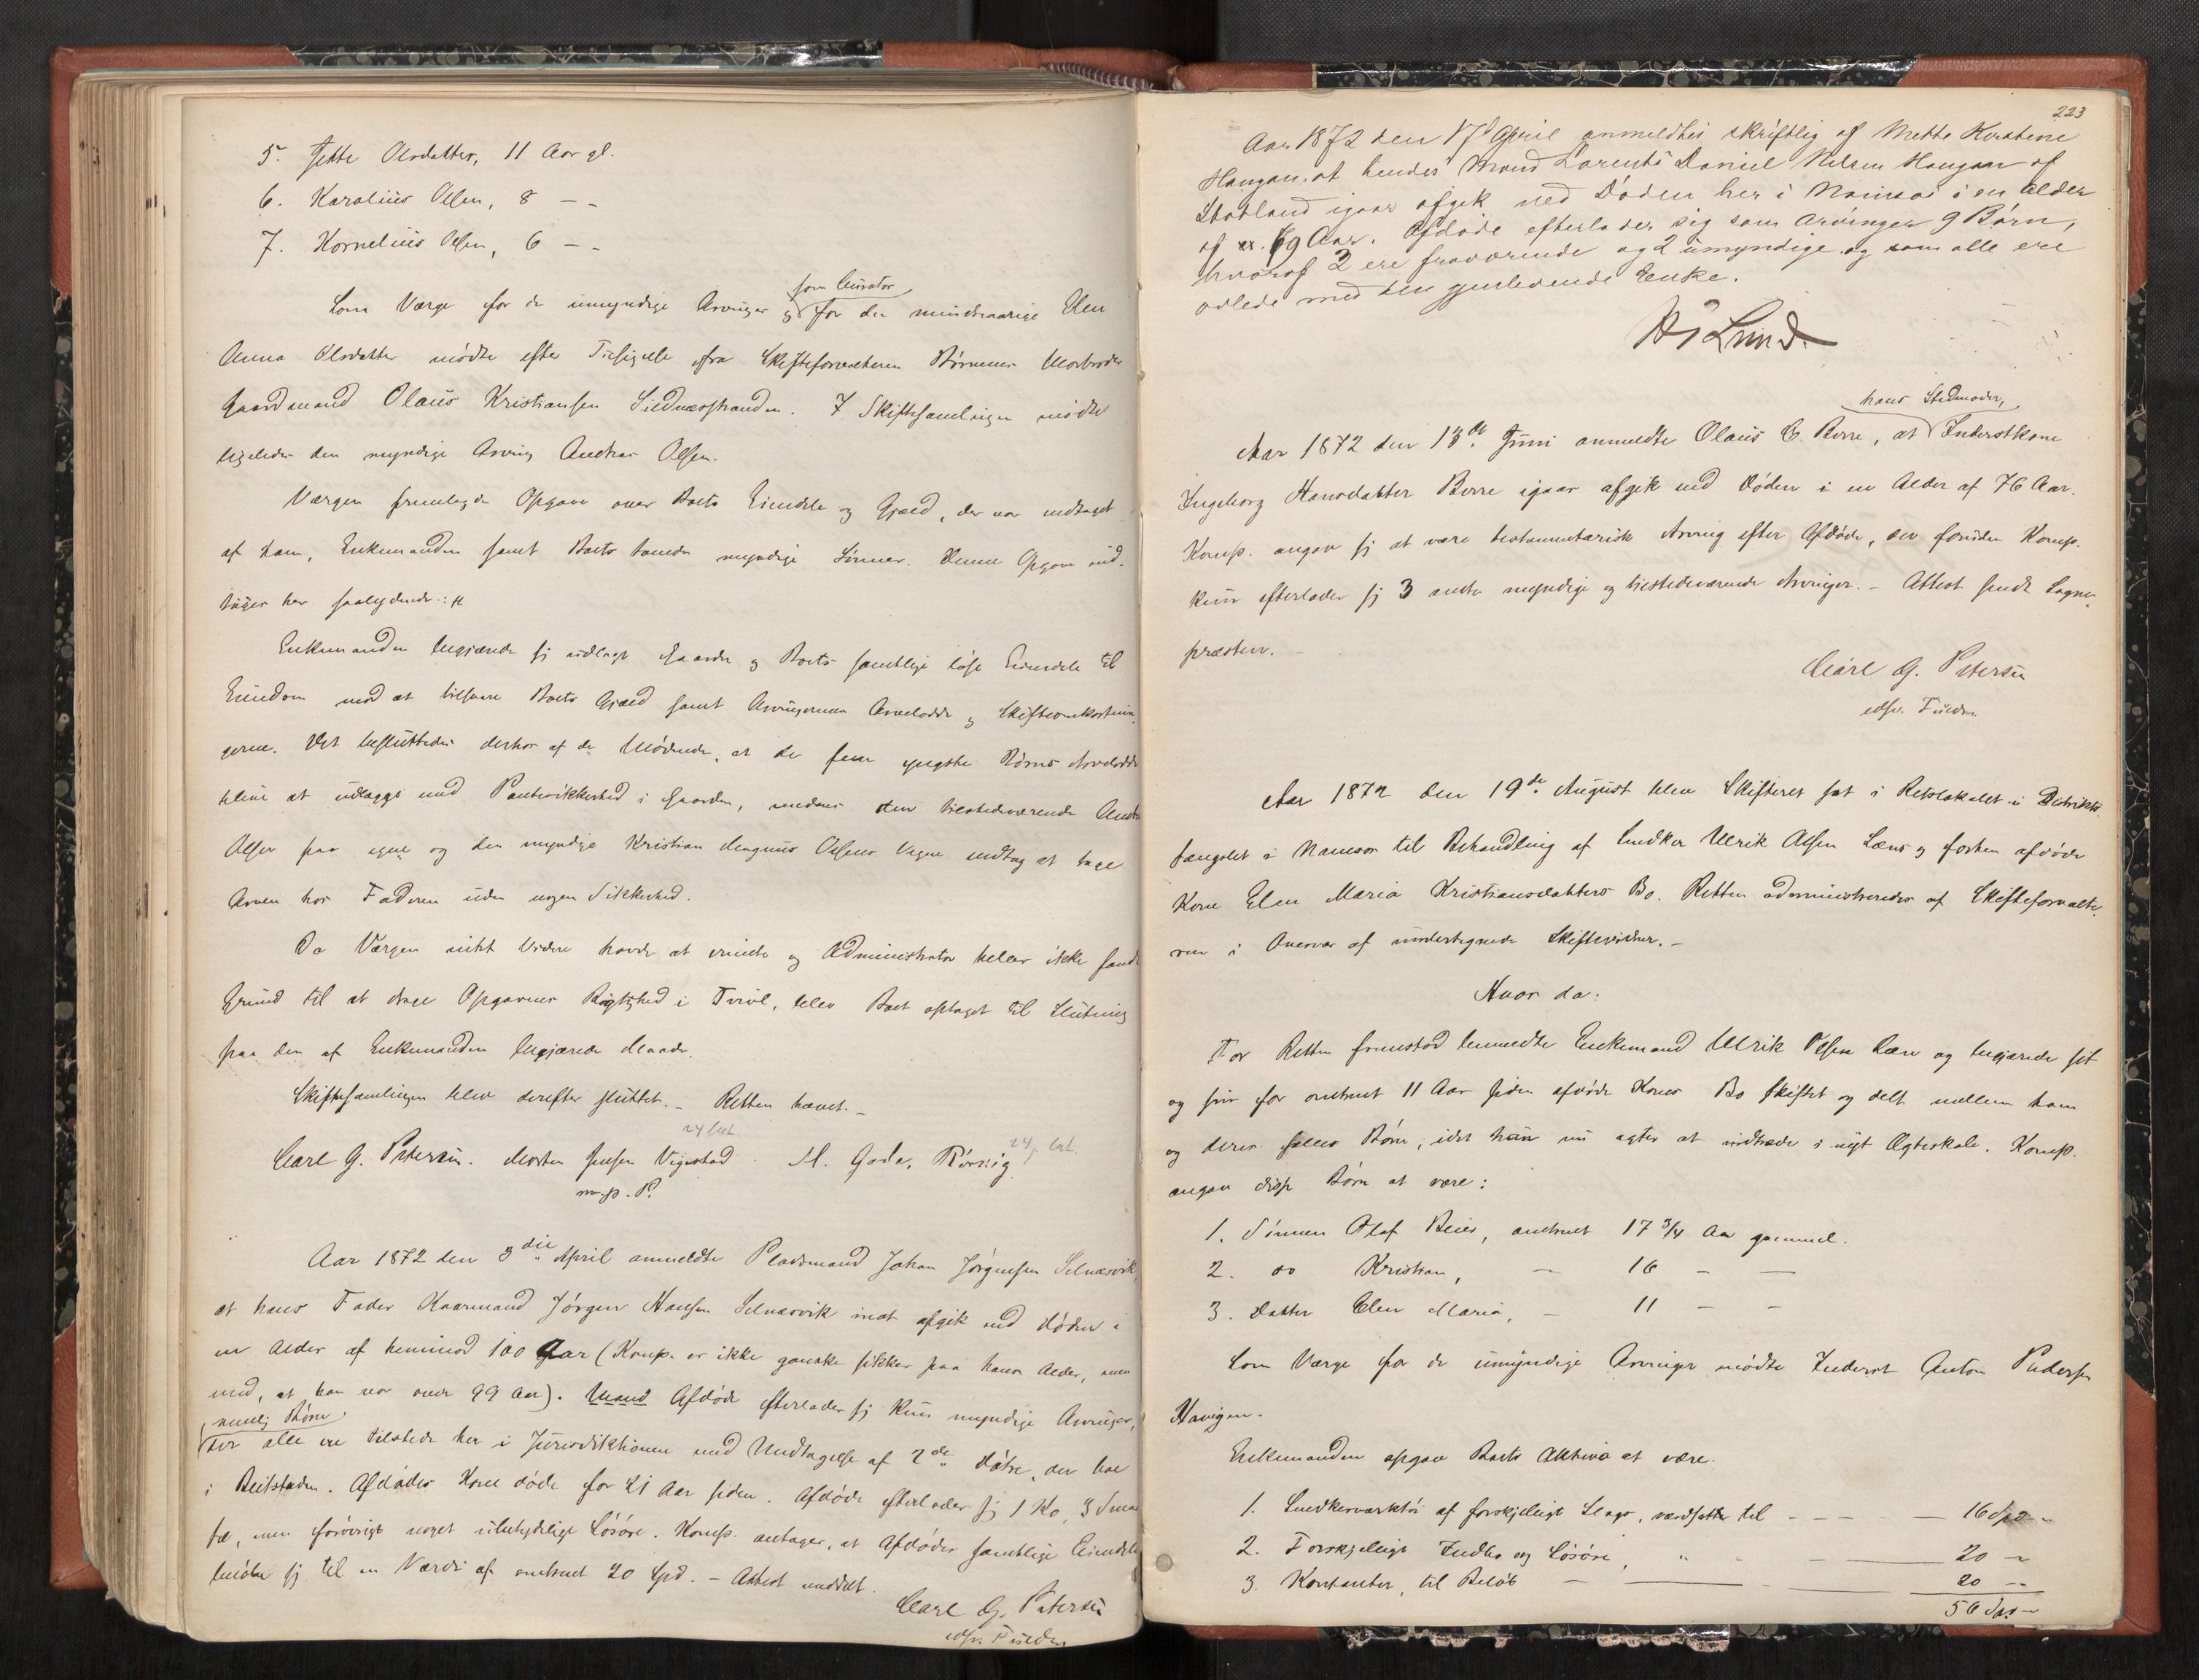 5. Jette Olsdatter, 11 Aar gl.
6. Karolius Olsen, 8 - -
7. Kornelius Olsen, 6 - -
som Curator
Som Værge for de umyndige Arvinger og for den mindreaarige Elen
Anna Olsdatter mødte efter Tilsigelse fra Skifteforvalteren Børnenes Morbroder
Gaardmand Olaus Kristiansen . I Skiftesamlingen mødte
ligeledes den myndige Arving Andreas Olsen.
Værgen fremlagde Opgave over Boets Eiendele og Gjæld, der var indtaget
af ham, Enkemanden samt Boets tvende myndige Sønner. Denne Opgave ind-
tages her saalydende:
Enkemanden begjærede sig udlagt Gaarden og Boets samtlige løse Eiendele til
Eiendom mod at tilsvare Boets Gjæld samt Arvingernes Arvelodde og Skifteomkostnin-
gerne. Det besluttedes derhos af de Mødende, at de fem yngste Børns Arvelodde
blive at udlægge med Pantesikkerhed i Gaarden, medens den tilstedeværende Andreas
Olsen paa egne og den myndige Kristian Magnus Olsens Vegne modtog at tage
Arven hos Faderen uden nogen Sikkerhed.
Da Værgen intet videre havde at erindre og Administrator heller ikke fandt
Grund til at drage Opgavens Rigtighed i Tvivl, blev Boet optaget til Slutning
paa den af Enkemanden begjærede Maade.
Skiftesamlingen blev derefter sluttet. - Retten hævet. -
Carl G. Petersen. Morten Jensen Vigestad M. Gode, Rörvig
m. p. P.
Aar 1872 den 3die April anmeldte Pladsmand Johan Jørgensen Selnæsvik,
at hans Fader Kaarmand Jørgen Hansen Selnæsvik inat afgik ved Døden i
en Alder af henimod 100 Aar (Komp. er ikke ganske sikker paa hans Alder, men
med, at han var over 99 Aar). Afdøde efterlader sig kun myndige Arvinger,
nemlig Børn
der alle ere tilstede her i Jurisdiktionen med Undtagelse af 2de Døtre, der boe
i Beitstaden. Afdødes Kone døde for 21 Aar siden. Afdøde efterlader sig 1 Ko, 3 Smaa-
fæ, men forøvrigt noget ubetydelige Løsøre. Komp. antager, at Afdødes samtlige Eiendele
beløber sig til en Værdi af omtrent 20 Spd. - Attest meddelt.
Carl G. Petersen
223
Aar 1872 den 17d April anmeldtes skriftlig af Mette Kerstine
Haugan, at hendes Mand Lorents Daniel Nilsen Haugan af
igaar afgik ved Døden her i Namsos i en Alder
af 69 Aar. Afdøde efterlader sig som Arvinger 9 Børn,
hvoraf 2 ere fraværende og 2 umyndige og som alle ere
avlede med den gjenlevende Enke.
Lund
hans Stedmoder,
Aar 1872 den 13de Juni anmeldte Olaus C. Berre, at Inderstkone
Ingeborg Hansdatter Berre igaar afgik ved Døden i en Alder af 76 Aar.
Komp. angav sig at være testamentarisk Arving efter Afdøde, der foruden Komp.
kun efterlader sig 3 andre myndige og tilstedeværende Arvinger. - Attest sendt Sogne-
præsten.
Carl G. Petersen
Aar 1872 den 19de August blev Skifteret sat i Retslokalet i Distrikts-
fængslet i Namsos til Behandling af Snedker Ulrik Olsen Læns og forhen afdøde
Kone Elen Maria Kristiansdatters Bo. Retten administreredes af Skifteforvalte-
ren i Overvær af undertegnede Skiftevidner. -
Hvor da:
For Retten fremstod bemeldte Enkemand Ulrik Olsen Læn og begjærede sit
og sin for omtrent 11 Aar siden afdøde Kones Bo skiftet og delt mellem ham
og deres fælles Børn, idet han nu agter at indtræde i nyt Ægteskab. Komp.
angav disse Børn at være:
1. Sønnen Olaf Beier, omtrent 17 3/4 Aar gammel.
2. do Kristian, - 16 - -
3. Datter Elen Maria, - 11 - -
Som Værge for de umyndige Arvinger mødte Inderst Anton Pedersen
Havigen.
Enkemanden opgav Boets Aktiva at være.
1. Snedkerværktøi af forskjelligt Slags, værdsatte til - - - - 16 Spd -
2. Forskjelligt Indbo og Løsøre, " - - 20 -
3. Kontanter, til Beløb - - - 20 - -
56 Spd -